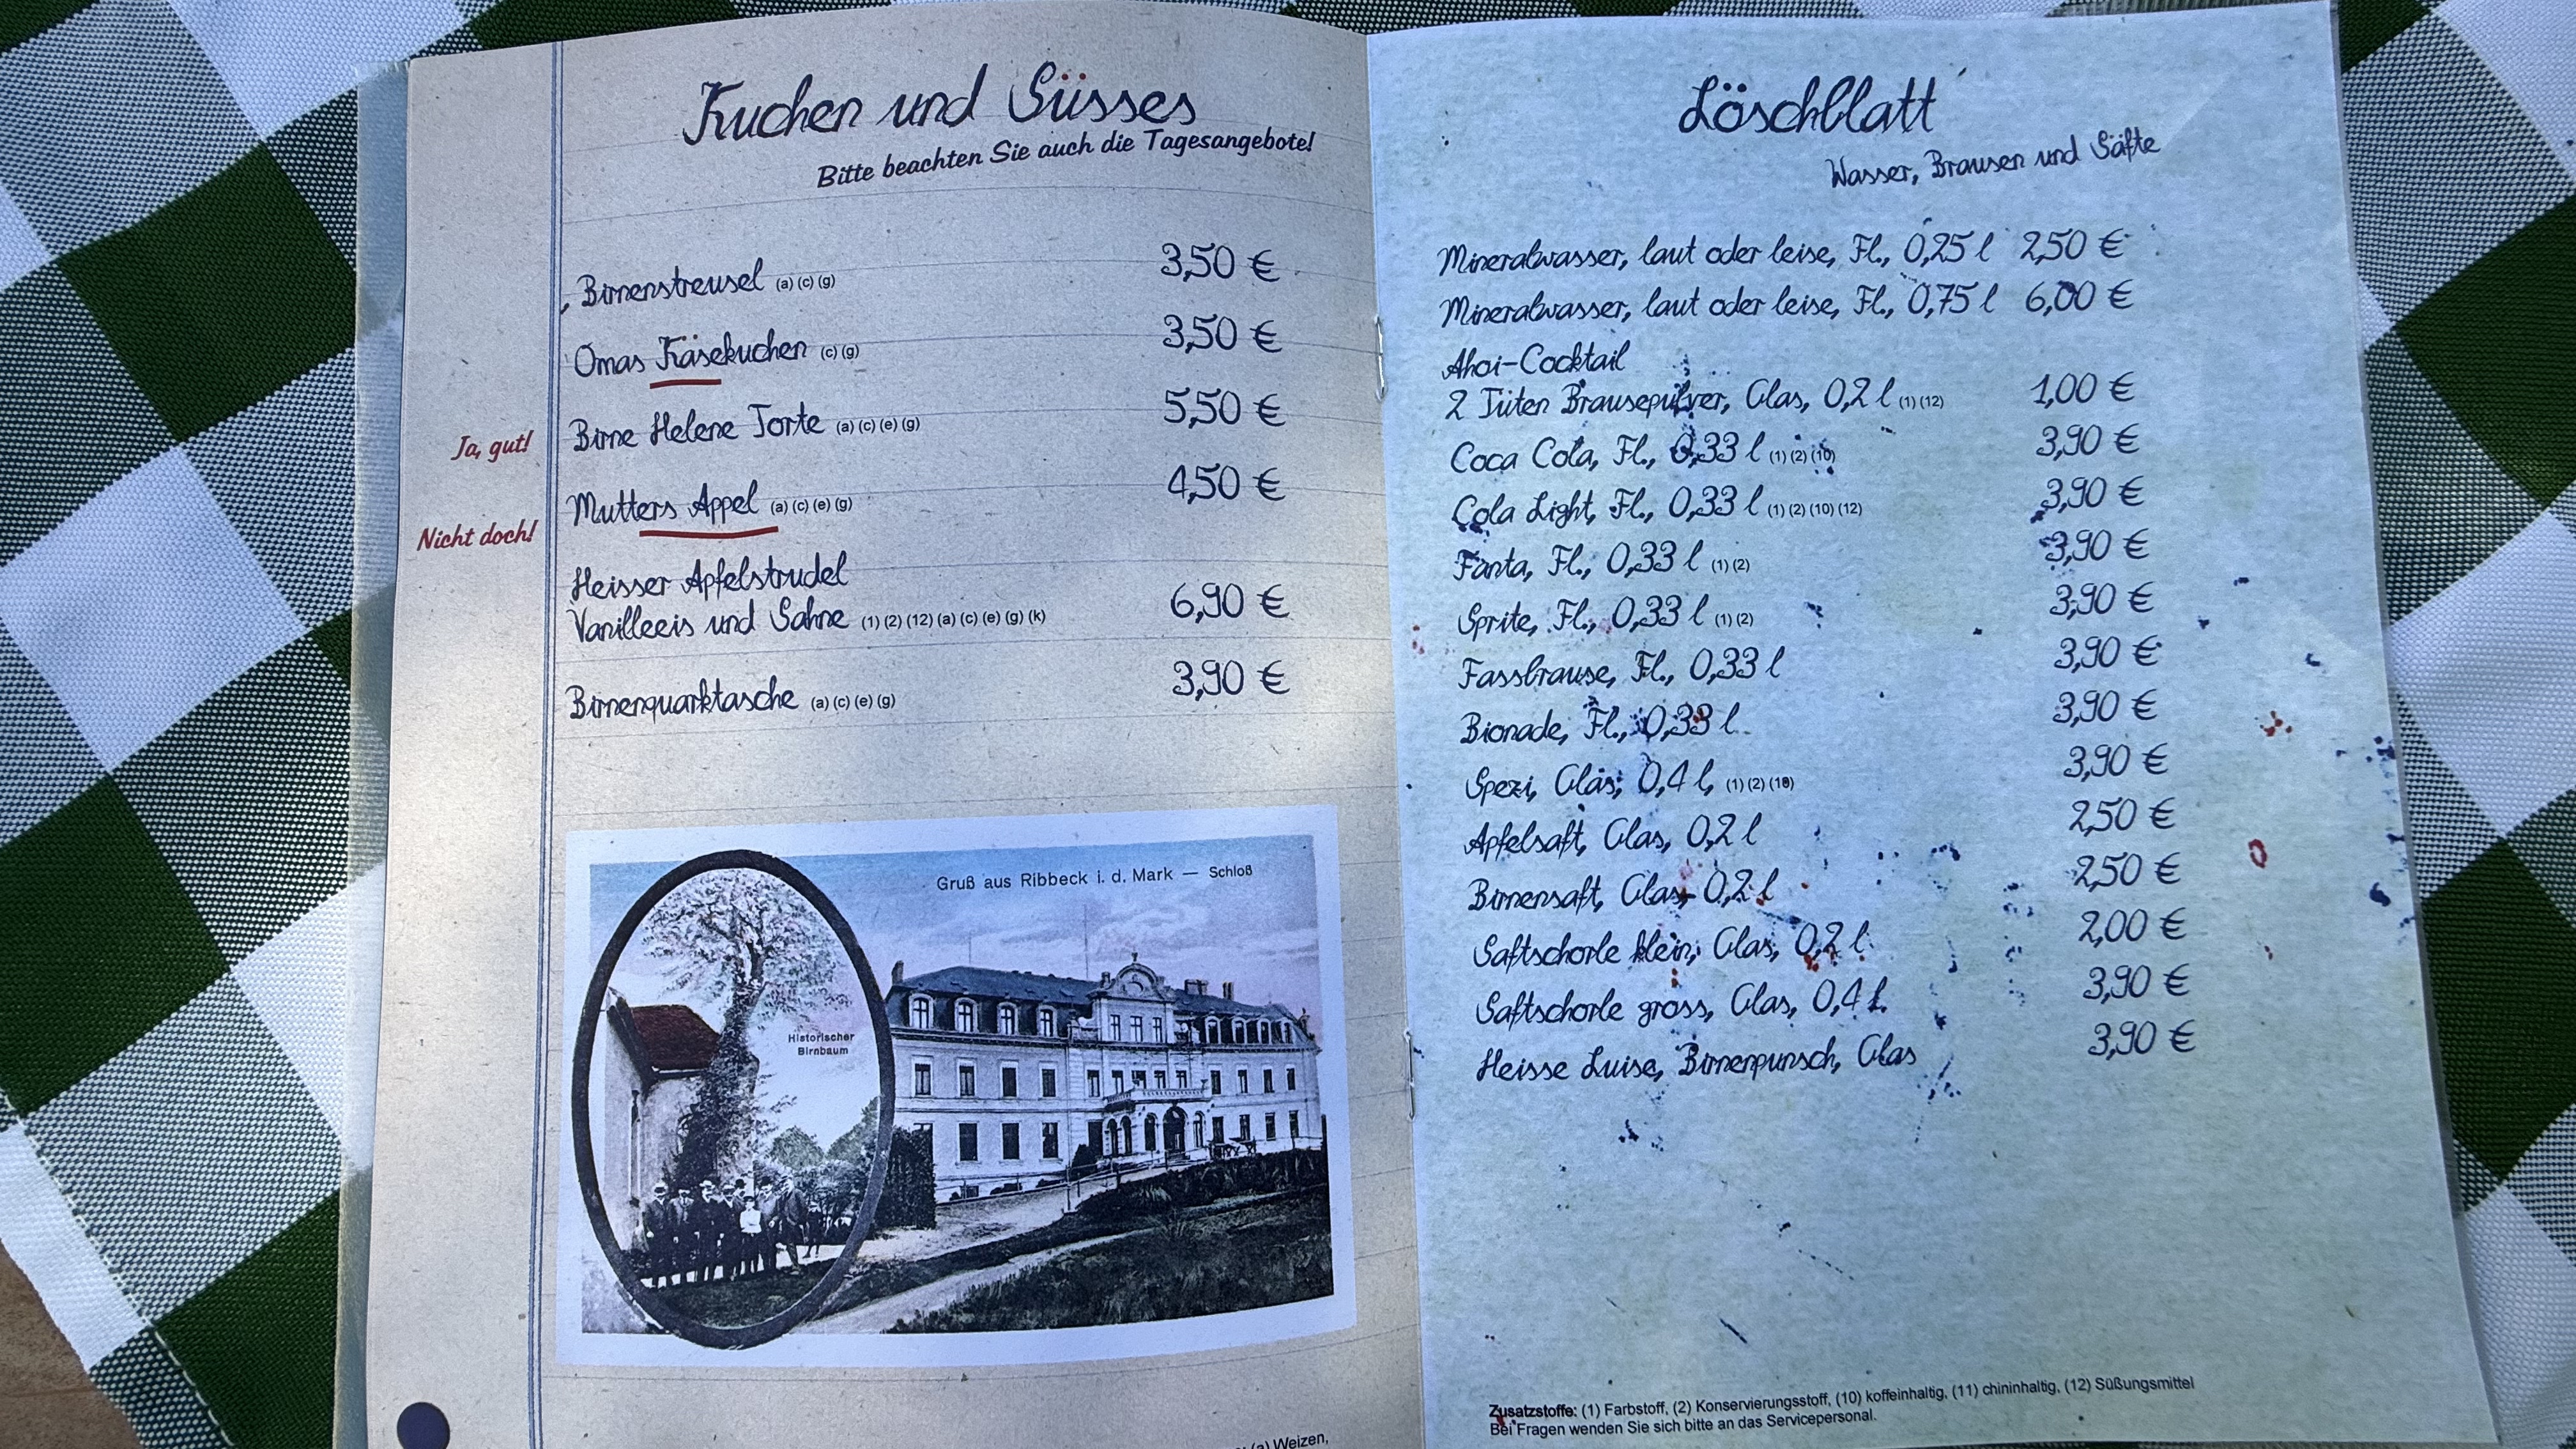 Kuchen und Süsses
Bitte beachten Sie auch die Tagesangebote!
Birnenstreusel (a) (c) (g) 3,50 €
Omas Käsekuchen (c) (g) 3,50 €
Ja, gut!
Birne Helene Torte (a) (c) (e) (g) 5,50 €
Nicht doch!
Mutters Appel (a) (c) (e) (g) 4,50 €
Heisser Apfelstrudel
Vanilleeis und Sahne (1) (2) (12) (a) (c) (e) (g) (k) 6,90 €
Birnenquarktasche (a) (c) (e) (g) 3,90 €
Gruß aus Ribbeck i. d. Mark — Schloß
Historischer
Birnbaum
(a) Weizen,
Löschblatt
Wasser, Brausen und Säfte
Mineralwasser, laut oder leise, Fl., 0,25 l 2,50 €
Mineralwasser, laut oder leise, Fl., 0,75 l 6,00 €
Ahoi-Cocktail
2 Tüten Brausepulver, Glas, 0,2 l (1) (12) 1,00 €
Coca Cola, Fl., 0,33 l (1) (2) (10) 3,90 €
Cola Light, Fl., 0,33 l (1) (2) (10) (12) 3,90 €
Fanta, Fl., 0,33 l (1) (2) 3,90 €
Sprite, Fl., 0,33 l (1) (2) 3,90 €
Fassbrause, Fl., 0,33 l 3,90 €
Bionade, Fl., 0,33 l 3,90 €
Spezi, Glas, 0,4 l, (1) (2) (10) 3,90 €
Apfelsaft, Glas, 0,2 l 2,50 €
Birnensaft, Glas, 0,2 l 2,50 €
Saftschorle klein, Glas, 0,2 l 2,00 €
Saftschorle gross, Glas, 0,4 l 3,90 €
Heisse Luise, Birnenpunsch, Glas 3,90 €
Zusatzstoffe: (1) Farbstoff, (2) Konservierungsstoff, (10) koffeinhaltig, (11) chininhaltig, (12) Süßungsmittel
Bei Fragen wenden Sie sich bitte an das Servicepersonal.